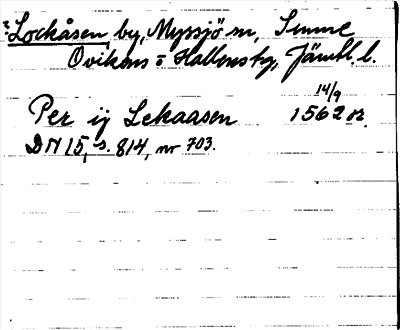 Lockåsen, by, Myssjö sn,
Ovikens o Hallens tg, Jämtl. l.
14/9
Per ij Lekaasen 1562 or.
DN 15, s. 814, nr 703.